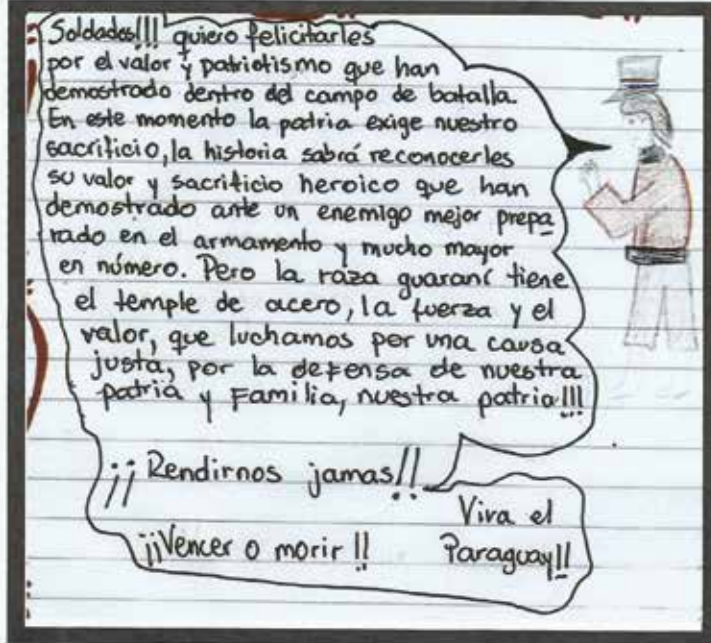 Soldados!!! quiero felicitarles
por el valor y patriotismo que han
demostrado dentro del campo de batalla.
En este momento la patria exige nuestro
sacrificio, la historia sabrá reconocerles
su valor y sacrificio heroico que han
demostrado ante un enemigo mejor prepa
rado en el armamento y mucho mayor
en número. Pero la raza guaraní tiene
el temple de acero, la fuerza y el
valor, que luchamos por una causa
justa, por la defensa de nuestra
patria y Familia, nuestra patria!!!
¡¡Rendirnos jamas!!
¡¡Vencer o morir!!
Viva el
Paraguay!!